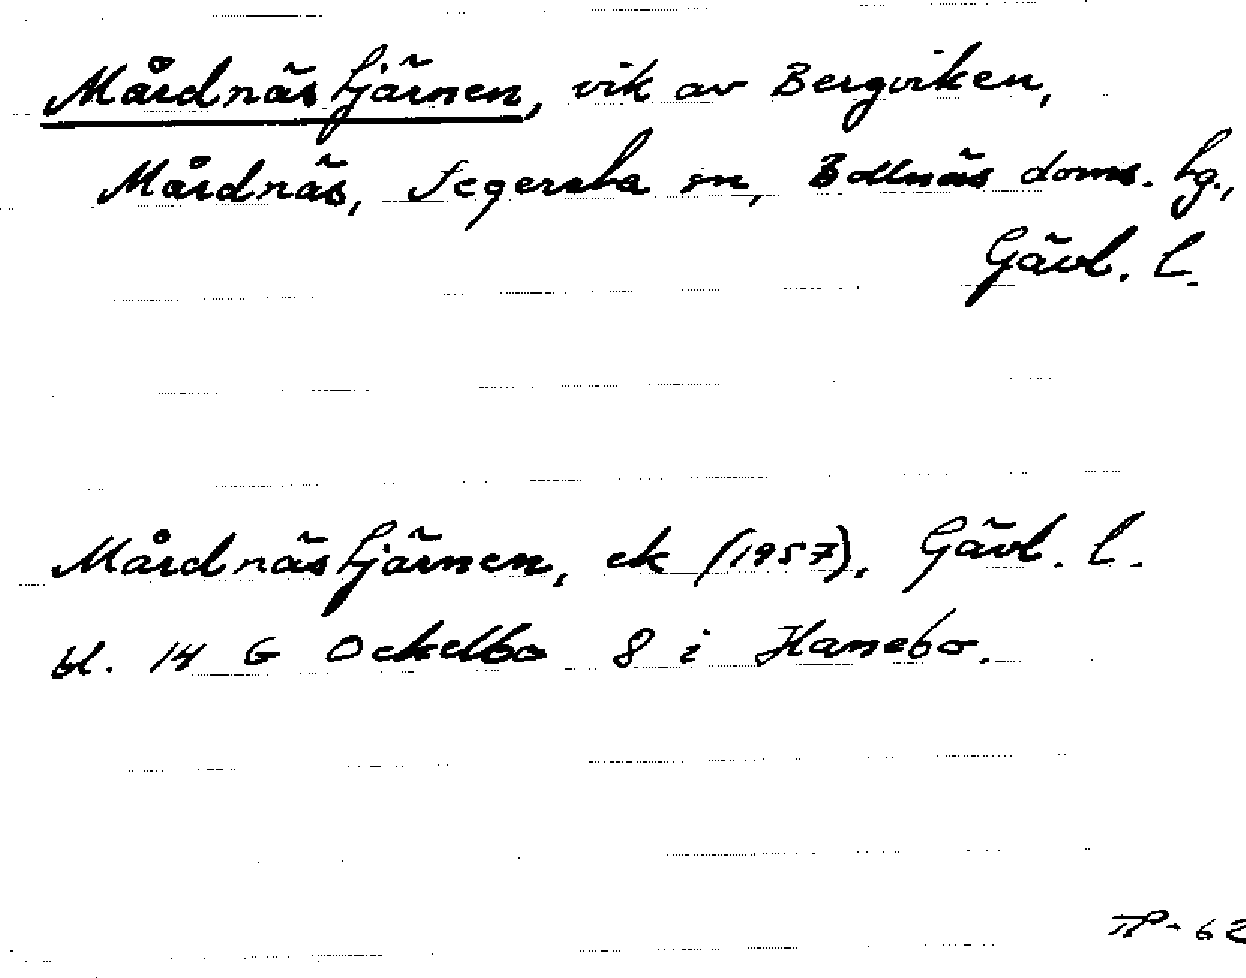 Mårdnästjärnen, vik av Bergviken,
Mårdnäs, Segersta sn, Bollnäs doms. hg.,
Gävl. l.
Mårdnästjärnen, ek (1957), Gävl. l.
bl. 14 G Ockelbo 8 i Hanebo.
TP-62